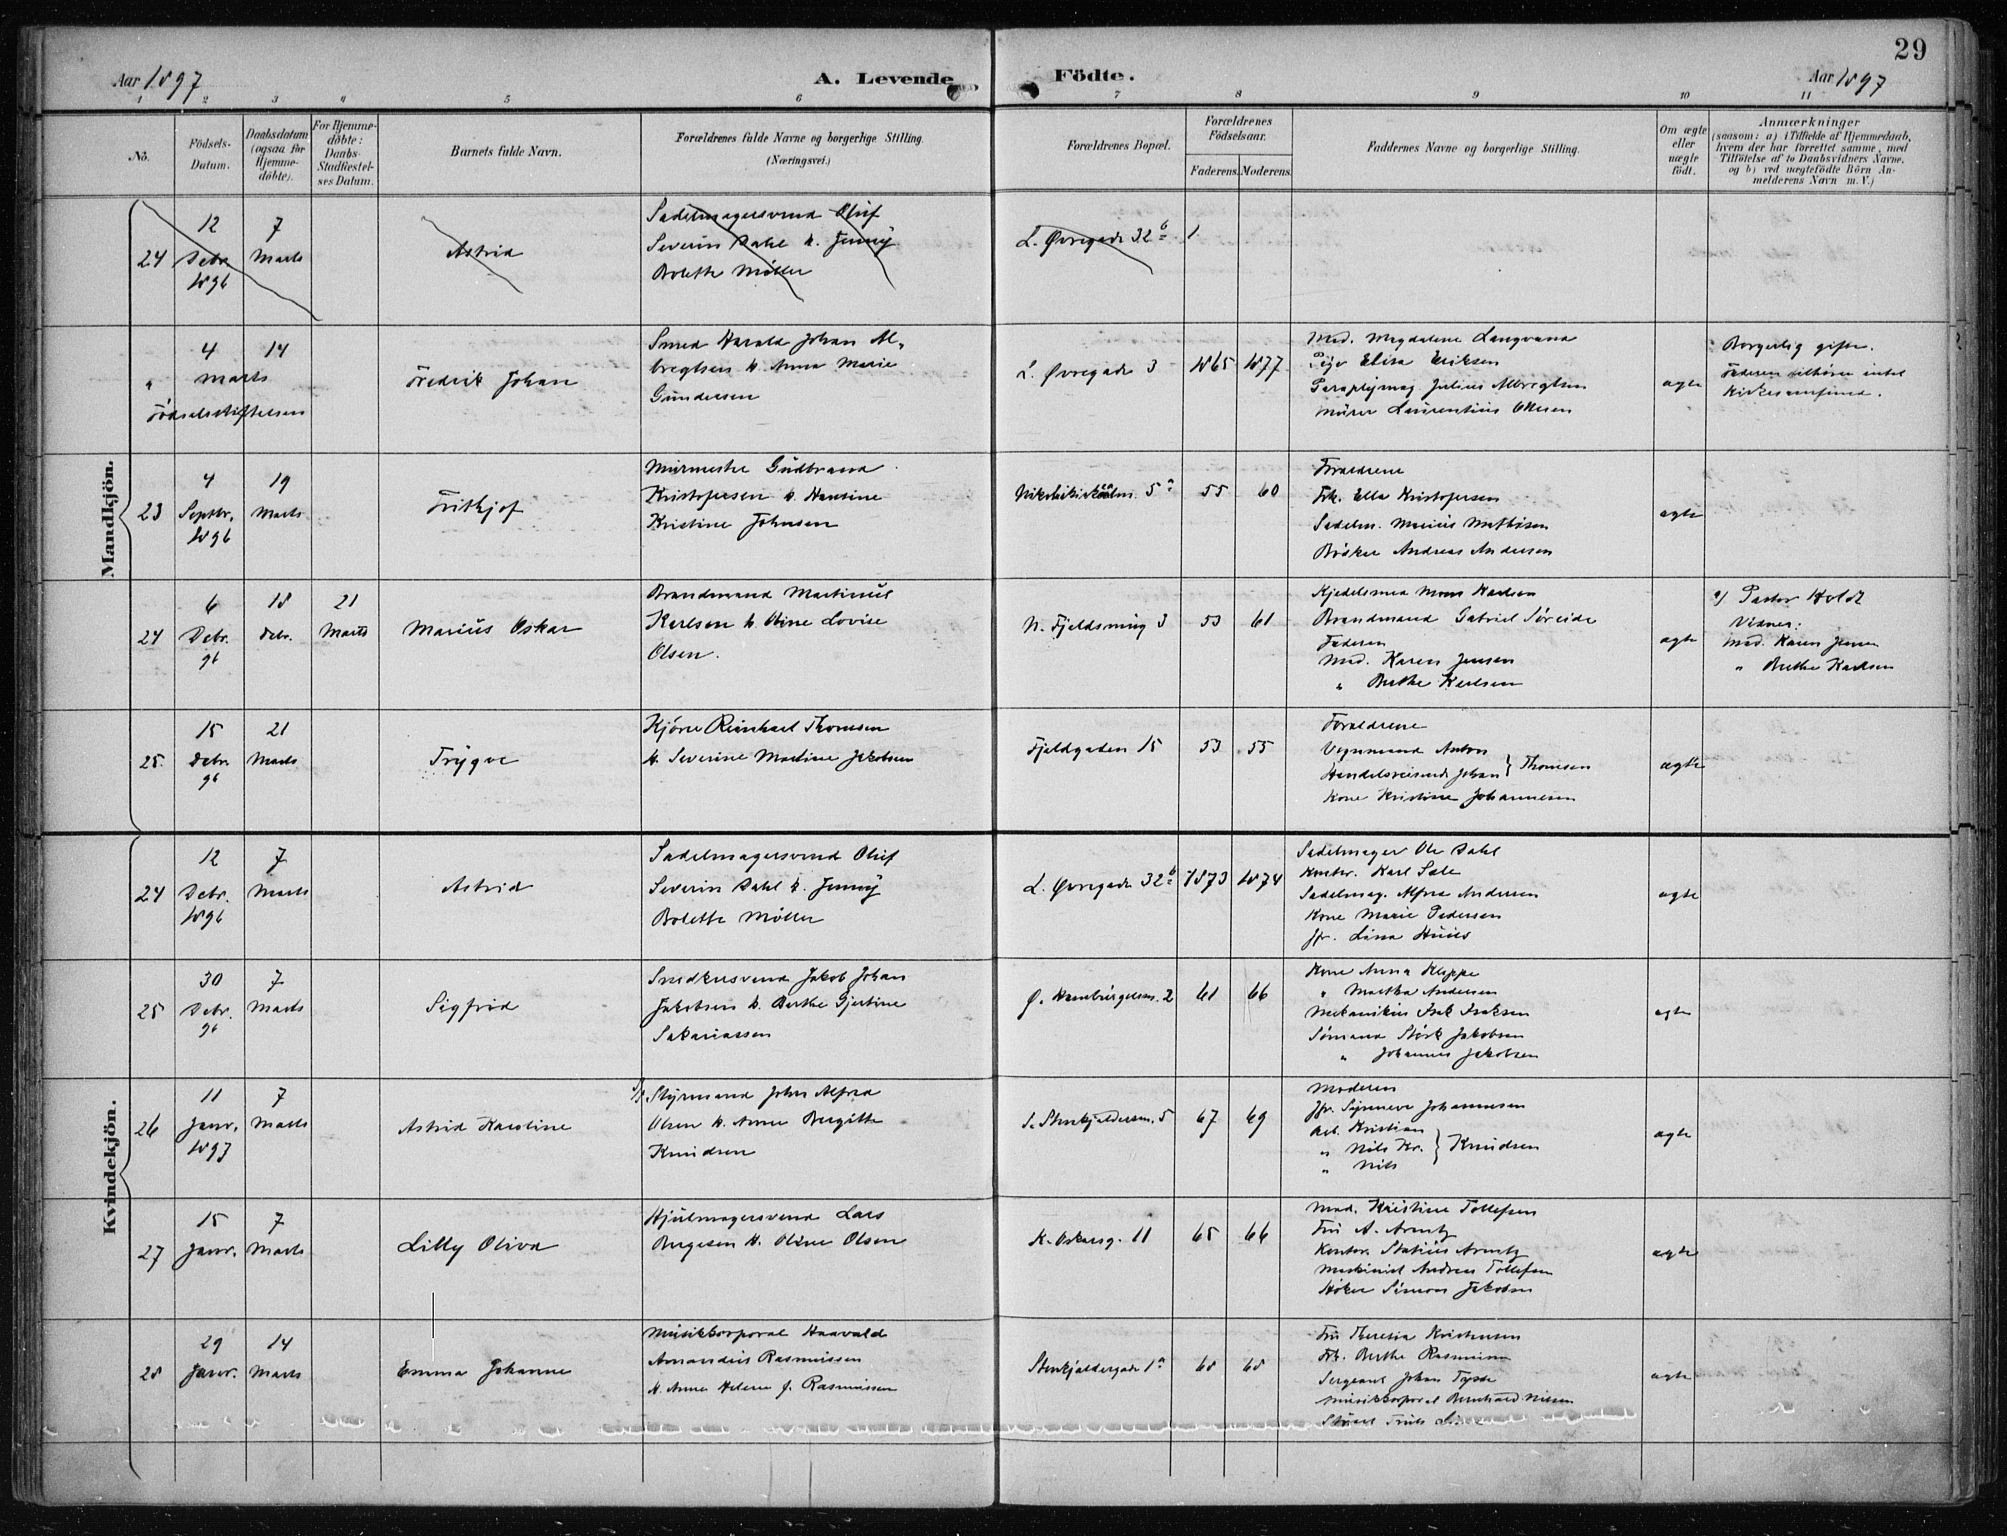 29
Aar 1897
A. Levende
Födte.
Aar 1897
1 2 3 4 5 6 7 8 9 10 11
No.
Födsels-Datum.
Daabsdatum (ogsaa for Hjemme-döbte).
For Hjemme-döbte: Daabs-Stadfæstel-ses Datum.
Barnets fulde Navn.
Forældrenes fulde Navne og borgerlige Stilling. (Næringsvei.)
Forældrenes Bopæl.
Forældrenes Födselsaar.
Faderens. Moderens.
Faddernes Navne og borgerlige Stilling.
Om ægte eller uægte födt.
Anmærkninger
(saasom: a) i Tilfælde af Hjemmedaab, hvem der har forrettet samme, med Tilföielse af to Daabsvidners Navne. og b) ved uægtefödte Börn An-melderens Navn m. V.)
Mandkjön.
24
12 Debr. 1896
7 Marts
Astrid
Sadelmagersvend Oluf
Severin Dahl h. Jenny
Bolette Möller
L. Øvregade 32 b
1
"
4 14
Marts
Födselsstiftelsen
Fredrik Johan
Smed Harald Johan Al-
bregtsen h. Anna Marie
Gundersen
L. Øvregade 3
1865 1877
Mad. Magdalene Langvand
Pige Elisa Eriksen
Paraplymag. Julius Albregtsen
Murer Laurentius Olsen
ægte
Borgerlig gifte.
Faderen tilhörer intet
Kirkesamfund.
23
4 Septbr. 1896
19 Marts
Frithjof
Murmester Gudbrand
Kristofersen h. Hansine
Kristine Johnsen
Nikolaikirkealm. 5 a
55 60
Forældrene
Frk. Ella Kristofersen
Sadelm. Marius Mathisen
Bödker Andreas Andersen
ægte
24
6 Debr. 96
18 Debr.
21 Marts
Marius Oskar
Brandmand Martinus
Karlsen h. Oline Lovise
Olsen.
N. Fjeldsmug 3
53 61
Kjedelsmed Mons Karlsen
Brandmand Gabriel Söreide
Faderen
Mad. Karen Jensen
" Berthe Karlsen
ægte
a) Pastor Holdt
Vidner:
Mad. Karen Jensen
" Berthe Karlsen
25.
15 Debr. 96
21 Marts
Trygve
Kjörer Reinhard Thomsen
h. Severine Martine Jakobsen
Fjeldgaden 15
53 55
Forældrene
Vognmand Anton
Handelsreisende Johan } Thomsen
Kone Kristine Johannesen
ægte
Kvindekjön.
24
12 Debr. 1896
7 Marts
Astrid
Sadelmagersvend Oluf
Severin Dahl h. Jenny
Bolette Möller
L. Øvregade 32 b
1873 1874
Sadelmager Ole Dahl
Karl Sæle
Sadelmag. Alfred Andersen
Kone Marie Pedersen
Jfr. Lina
ægte
25
30 Debr. 96
7 Marts
Sigfrid
Smedersvend Jakob Johan
Jakobsen h. Berthe Gjertine
Sakariassen
Ø. Hamburgersm. 2
61 66
Kone Anna Kleppe
" Martha Andersen
Mekanikus Isak Isaksen
Sömand Störk Jakobsen
" Johannes Jakobsen
ægte
26
11 Janr. 1897
7 Marts
Astrid Karoline
Styrmand John Alfred
Olsen h. Anne Bergitte
Knudsen
S. Stenkjeldersm. 5
67 69
Moderen
Jfr. Synneve Johannesen
Arb. Kristian
" Nils Kr. } Knudsen
" Nils
ægte
27
15 Janr.
7 Marts
Lilly Oliva
Hjulmagersvend Lars
Bergesen h. Oline Olsen
K. Oskarsg. 11
65 66
Mad. Kristine Tollefsen
Fru A. Arentz
Kontor. Statius Arentz
Maskinist Andreas Tollefsen
Höker Simon Jakobsen
ægte
28
29 Janr.
14 Marts
Emma Johanne
Musikkorporal Haavald
Amandus Rasmussen
h. Anne Helene f. Rasmussen
Stenkjeldergade 1 a
68 68
Fru Theresia Kristensen
Frk. Berthe Rasmussen
Sergeant Johan Tysse
Musikkorporal Bernhard Nilsen
ægte